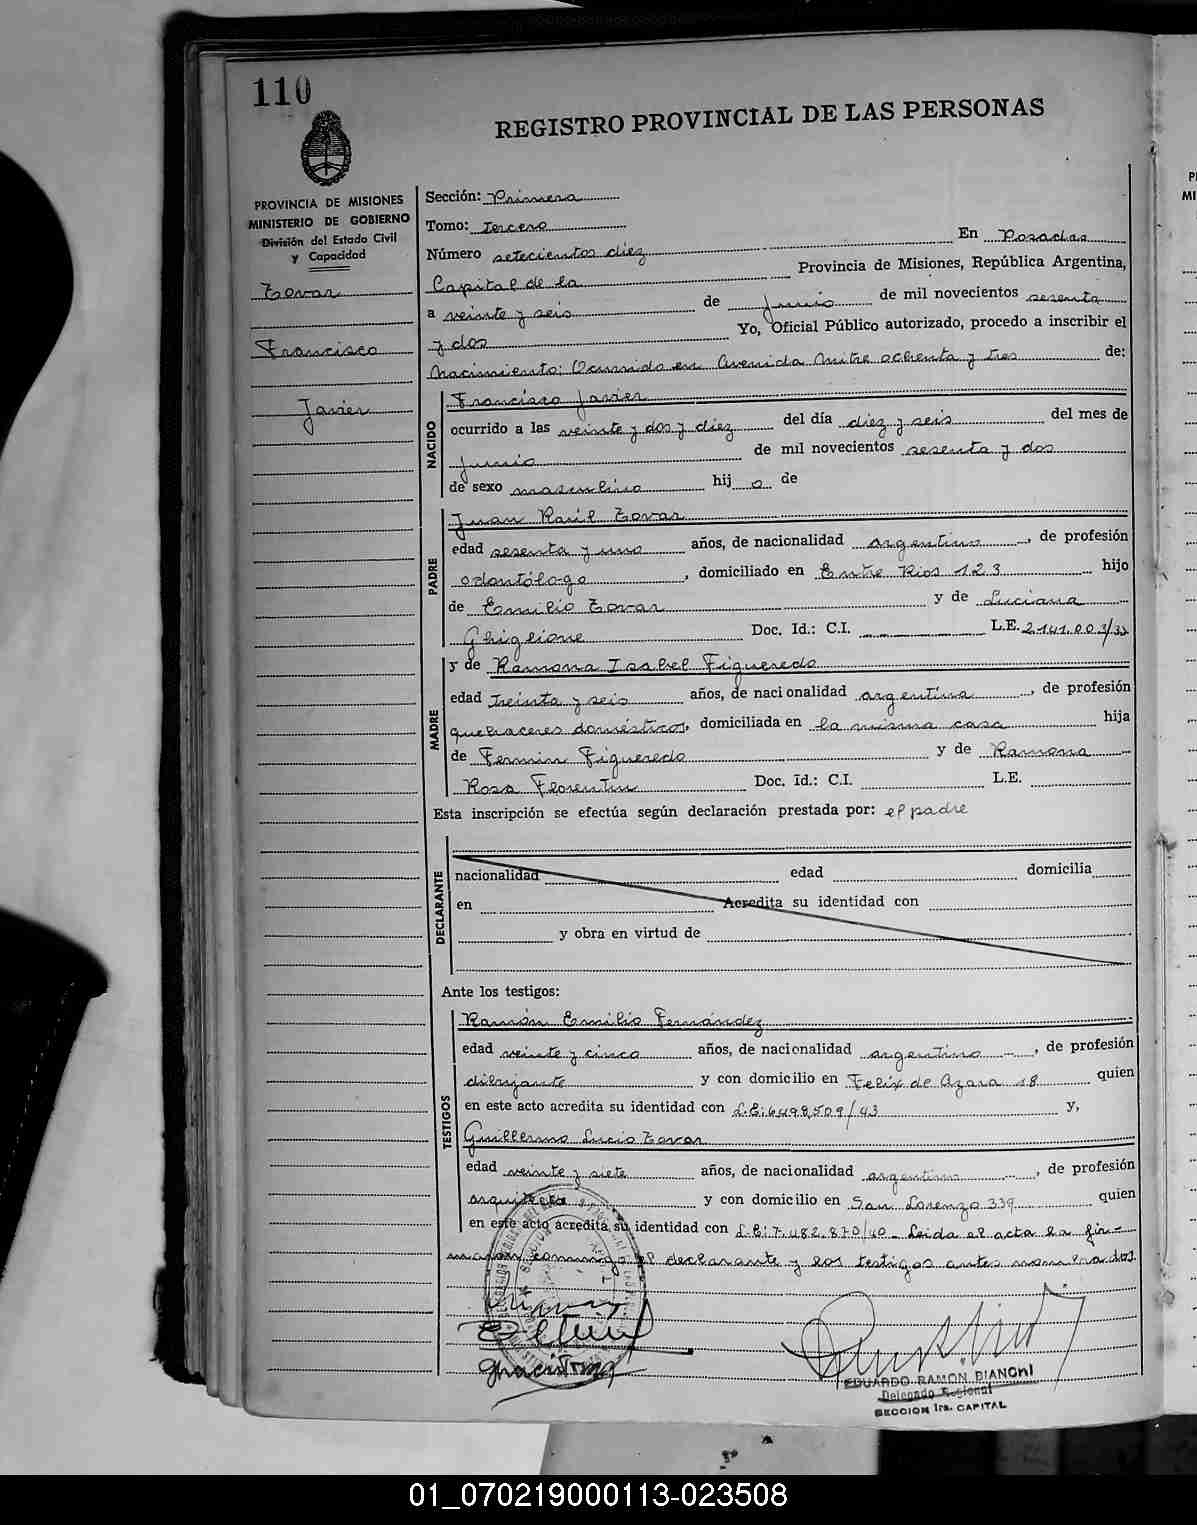 110
REGISTRO PROVINCIAL DE LAS PERSONAS
PROVINCIA DE MISIONES
MINISTERIO DE GOBIERNO
División del Estado Civil
y Capacidad
Tovar
Francisco
Javier
Sección: Primera
Tomo: tercero
Número setecientos diez En Posadas
Capital de la Provincia de Misiones, República Argentina,
a veinte y seis de junio de mil novecientos sesenta
y dos Yo, Oficial Público autorizado, procedo a inscribir el
nacimiento: Ocurrido en Avenida Mitre ochenta y tres de:
NACIDO
Francisco Javier
ocurrido a las veinte y dos y diez del día diez y seis del mes de
junio de mil novecientos sesenta y dos
de sexo masculino hij o de
PADRE
Juan Raúl Tovar
edad sesenta y uno años, de nacionalidad argentino, de profesión
odontólogo, domiciliado en Entre Rios 123 hijo
de Emilio Tovar y de Luciana
Ghiglione Doc. Id.: C.I. L.E. 2.141.003/33
MADRE
y de Ramona Isabel Figueredo
edad treinta y seis años, de nacionalidad argentina, de profesión
quehaceres domésticos, domiciliada en la misma casa hija
de Fermin Figueredo y de Ramona
Rosa Florentin Doc. Id.: C.I. L.E.
Esta inscripción se efectúa según declaración prestada por: el padre
DECLARANTE
nacionalidad edad domicilia
en Acredita su identidad con
y obra en virtud de
Ante los testigos:
TESTIGOS
Ramón Emilio Fernández
edad veinte y cinco años, de nacionalidad argentino, de profesión
dibujante y con domicilio en Felix de Azara 18 quien
en este acto acredita su identidad con L.E: 6498,509/43 y,
Guillermo Lucio Tovar
edad veinte y siete años, de nacionalidad argentino, de profesión
arquitecto y con domicilio en San Lorenzo 339 quien
en este acto acredita su identidad con L.E: 7.482.870/40_ Leida el acta la fir-
maron conmigo el declarante y los testigos antes nombrados
EDUARDO RAMON BIANCHI
Delegado Regional
SECCION 1ra. CAPITAL
01_070219000113-023508